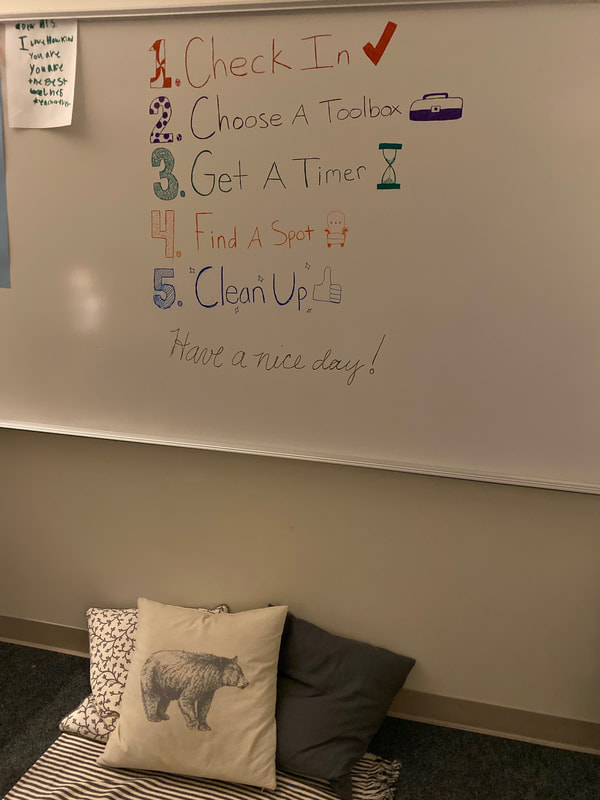 I love How kind
you are
you are
the BEST
1. Check In
2. Choose A Toolbox
3. Get A Timer
4. Find A Spot
5. Clean Up
Have a nice day!